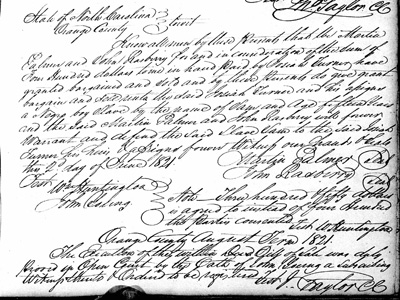 J. Taylor CC
State of North Carolina
Orange County
Know all men by these Presents that we Martin
Palmer and John Rasbery for and in consideration of the Sum of
Four Hundred dollars to me in hand Paid by Josiah Turner have
granted bargained and Sold and by these Presents do give grant
bargain and Sold unto the said Josiah Turner and his assigns
a Negro boy Slave by the name of aged fifteen Years
and the said Martin Palmer and John Rasbery will forever
Warrant and defend the Said Slave to the said Josiah
Turner his heirs & assigns forever Witness our hands & Seals
this 2 day of June 1821
Martin Palmer Seal
John Rasbery Seal
Test
Wm Huntington
John Young
Note Three hundred & fifty dollars
is agreed to instead of four Hundred
the Parties consented Test W Huntington
Orange County August Term 1821
The Execution of the written Deed Gift of Sale was duly
Proved in Open Court by the Oath of John Young a Subscribing
Witness thereto & Ordered to be registered
Test J. Taylor CC